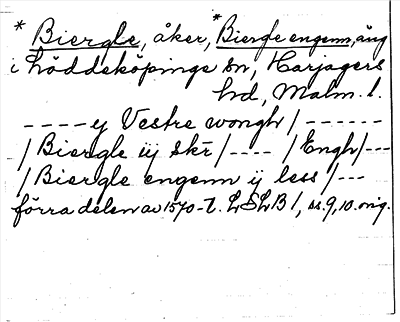 * Biergle, åker, * Biergle engenn, äng
i Löddeköpinge sn, Harjagers
hd, Malm. l.
----y Vestre wongh/------
/Biergle iij skr/---- /Engh/---
/Biergle engenn ij less/---
förra delen av 1570-t. LSLB 1, ss. 9, 10. orig.